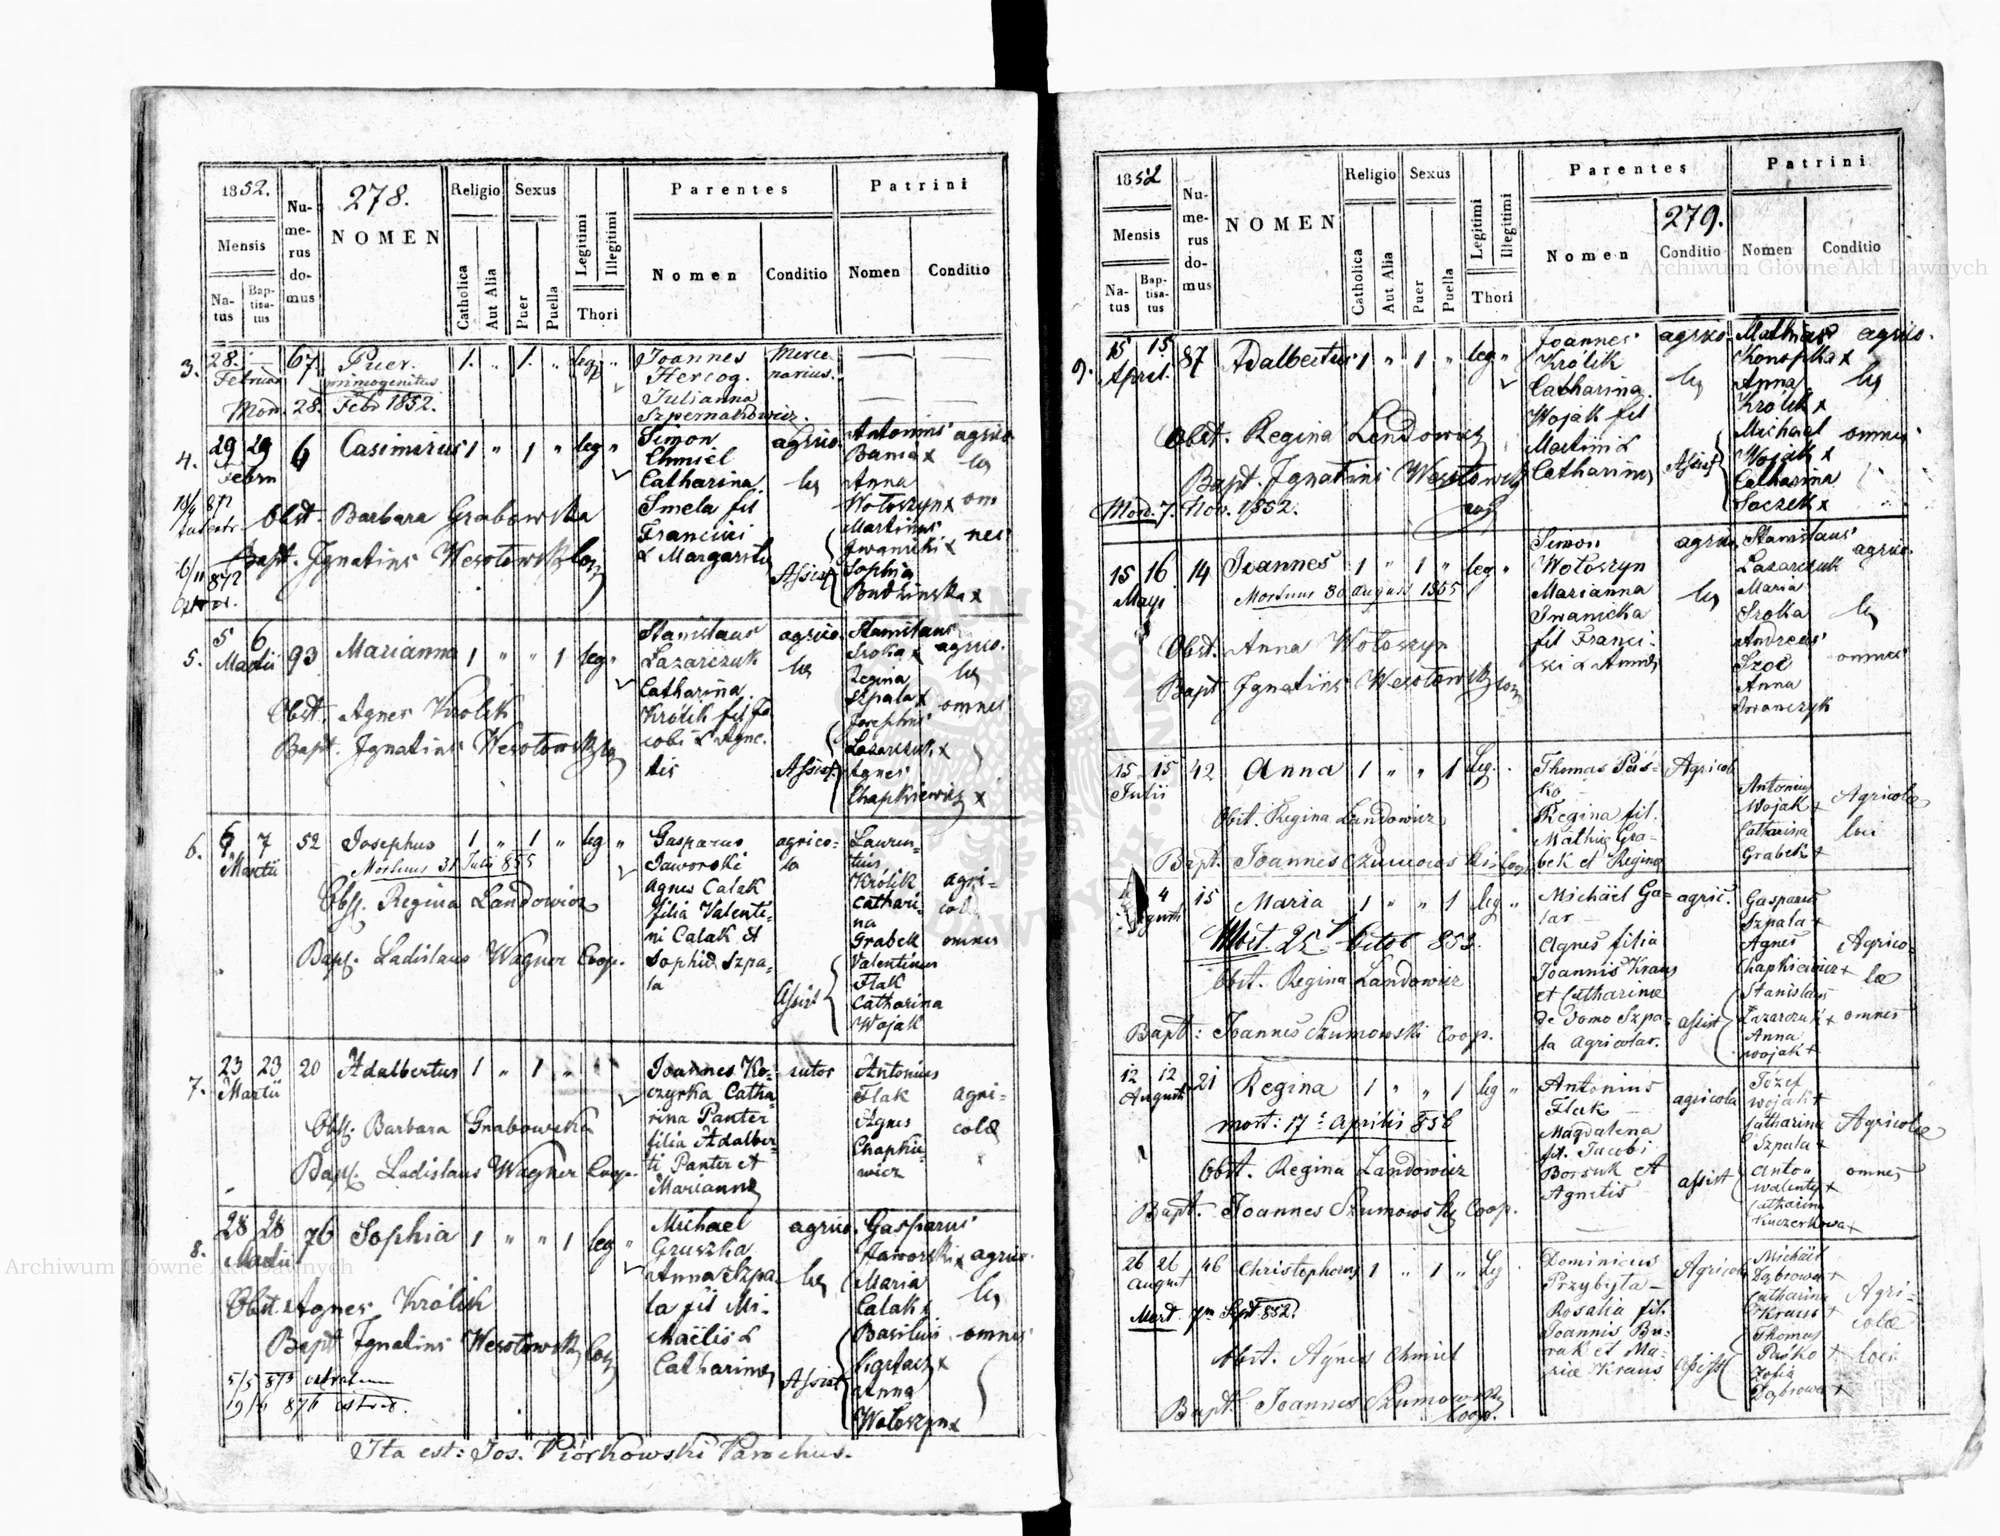 1852.
278.
Religio Sexus Parentes Patrini
Mensis
Numerus domus
NOMEN
Natus
Baptisatus
Catholica
Aut Alia
Puer
Puella
Legitimi
Illegitimi
Thori
Nomen Conditio Nomen Conditio
3. 28. 67 Puer. 1. " 1. " leg " Joannes Merce
Februar primogenitus Hercog. narius.
Mort. 28. Febr 1852. Julianna
4. 29 29 6 Casimirus 1 " 1 " leg " Simon agrico Antonius agrico
Febru Chmiel Bania x
Catharina la Anna la
Obst. Barbara Grabowska Smela fil Wołoszyn x om
Francisci Martinus nes
Bapt. Ignatius Wesołowski Coop & Margaritæ Iwanicki x
Assist Sophia
Budzinska x
5. 5 6 93 Marianna 1 " " 1 leg " Stanislaus agrico Stanislaus
Martii Łazarczuk Sroka x agrico.
Catharina la Regina la
Obst. Agnes Królik Królik fil Ja Szpala x omnes
cobi & Agne. Josephus
Bapt. Ignatius Wesołowski tis Łazarczuk x
Assist. Agnes
Chapkiewicz x
6. 6 7 52 Josephus 1 " 1 " leg " Gasparus agrico- Lauren-
Martii Mortuus 31 Juli 855 Jaworski la tius
Agnes Calak Królik agri-
Obst. Regina Landowicz filia Valenti- Cathari- colæ
ni Calak et na
Bapt. Ladislaus Wagner Coop. Sophia Szpa- Grabek omnes
la Valentinus
Flak
Assist Catharina
Wojak
7. 23 23 20 Adalbertus 1 " 1 " Joannes Ko- sutor Antonius
Martii czyrka Catha- Flak agri-
Obst. Barbara Grabowska rina Panter Agnes colæ
filia Adalber- Chapkie-
Bapt. Ladislaus Wagner Coop. ti Panter et wicz
Mariannæ
8. 28 28 76 Sophia 1 " " 1 leg " Michael agrico Gasparus
Martii Gruszka Jaworski x agrico
Anna Szpa- la Maria la
Obst. Agnes Królik la fil Mi- Calak x
chaëlis & Basilius omnes
Bapt Ignatius Wesołowski Coop Catharinæ
5/5 873 extratum Assist Anna
19/6 876 Wołoszyn x
Ita est: Jos. Piórkowski Parochus.
1852
279.
Religio Sexus Parentes Patrini
Mensis
Numerus domus
NOMEN
Natus
Baptisatus
Catholica
Aut Alia
Puer
Puella
Legitimi
Illegitimi
Thori
Nomen Conditio Nomen Conditio
9. 15 15 87 Adalbertus 1 " 1 " leg " Joannes agrico Mathias agrico.
April. Królik Konopka x
Catharina la Anna la
Wojak fil Królik x
Obst. Regina Landowicz Martini & Michael omnes
Catharinæ Assist Wojak x
Bapt. Ignatius Wesołowski Catharina
Mort. 7. Nov. 1852. Soczek x
15 16 14 Joannes 1 " 1 " leg " Simon agrico Stanislaus agrico.
Maji Mortuus 30 august 1855 Wołoszyn Łazarczuk
Marianna la Maria la
Iwanicka Sroka
Obst. Anna Wołoszyn fil Franci- Andreas omnes
sci & Annæ
Bapt Ignatius Wesołowski Coop Anna
Iwanczyk
15 15 42 Anna 1 " " 1 Leg. Thomas Paś- Agricola
Julii ko Antonius Agricolæ
Regina fil. Wojak +
Obst. Regina Landowicz Mathiæ Gra- Catharina loci
Bapt. Joannes Szumowski Coop bek et Reginæ Grabek +
4 15 Maria 1 " " 1 leg " Michaël Ga- agric. Gasparus
Augusti lar Szpala +
Mort. 25 853. Agnes filia Agnes Agrico-
Obst. Regina Landowicz Joannis Kraus Chapkiewicz + læ
et Catharinæ Stanislaus
de domo Szpa- assist Łazarczuk + omnes
Bapt: Joannes Szumowski Coop. la agricolar. Anna
Wojak +
12 12 21 Regina 1 " " 1 leg " Antonius agricola Józef
Augusti Flak Wojak +
mort: 17 Aprilis 856 Magdalena Catharina Agricolæ
fil. Jacobi Szpala +
Obst. Regina Landowicz Borsuk et assist Anton omnes
Agnetis
Bapt. Joannes Szumowski Coop. Catharina
Kuczerkowa +
26 26 46 Christophorus 1 " 1 " Leg Dominicus Agricola Michäel
August Przybyła Dąbrowa + Agri-
Mort. 7 Sept 852. Rosalia fil. Catharina colæ
Joannis Bu- Kraus +
Obst. Agnes Chmiel rak et Ma- Thomas loci
riæ Kraus assist Paśko +
Bapt Joannes Szumowski Zofia
Coop. Dąbrowa +
Archiwum Główne Akt Dawnych
Archiwum Główne Akt Dawnych